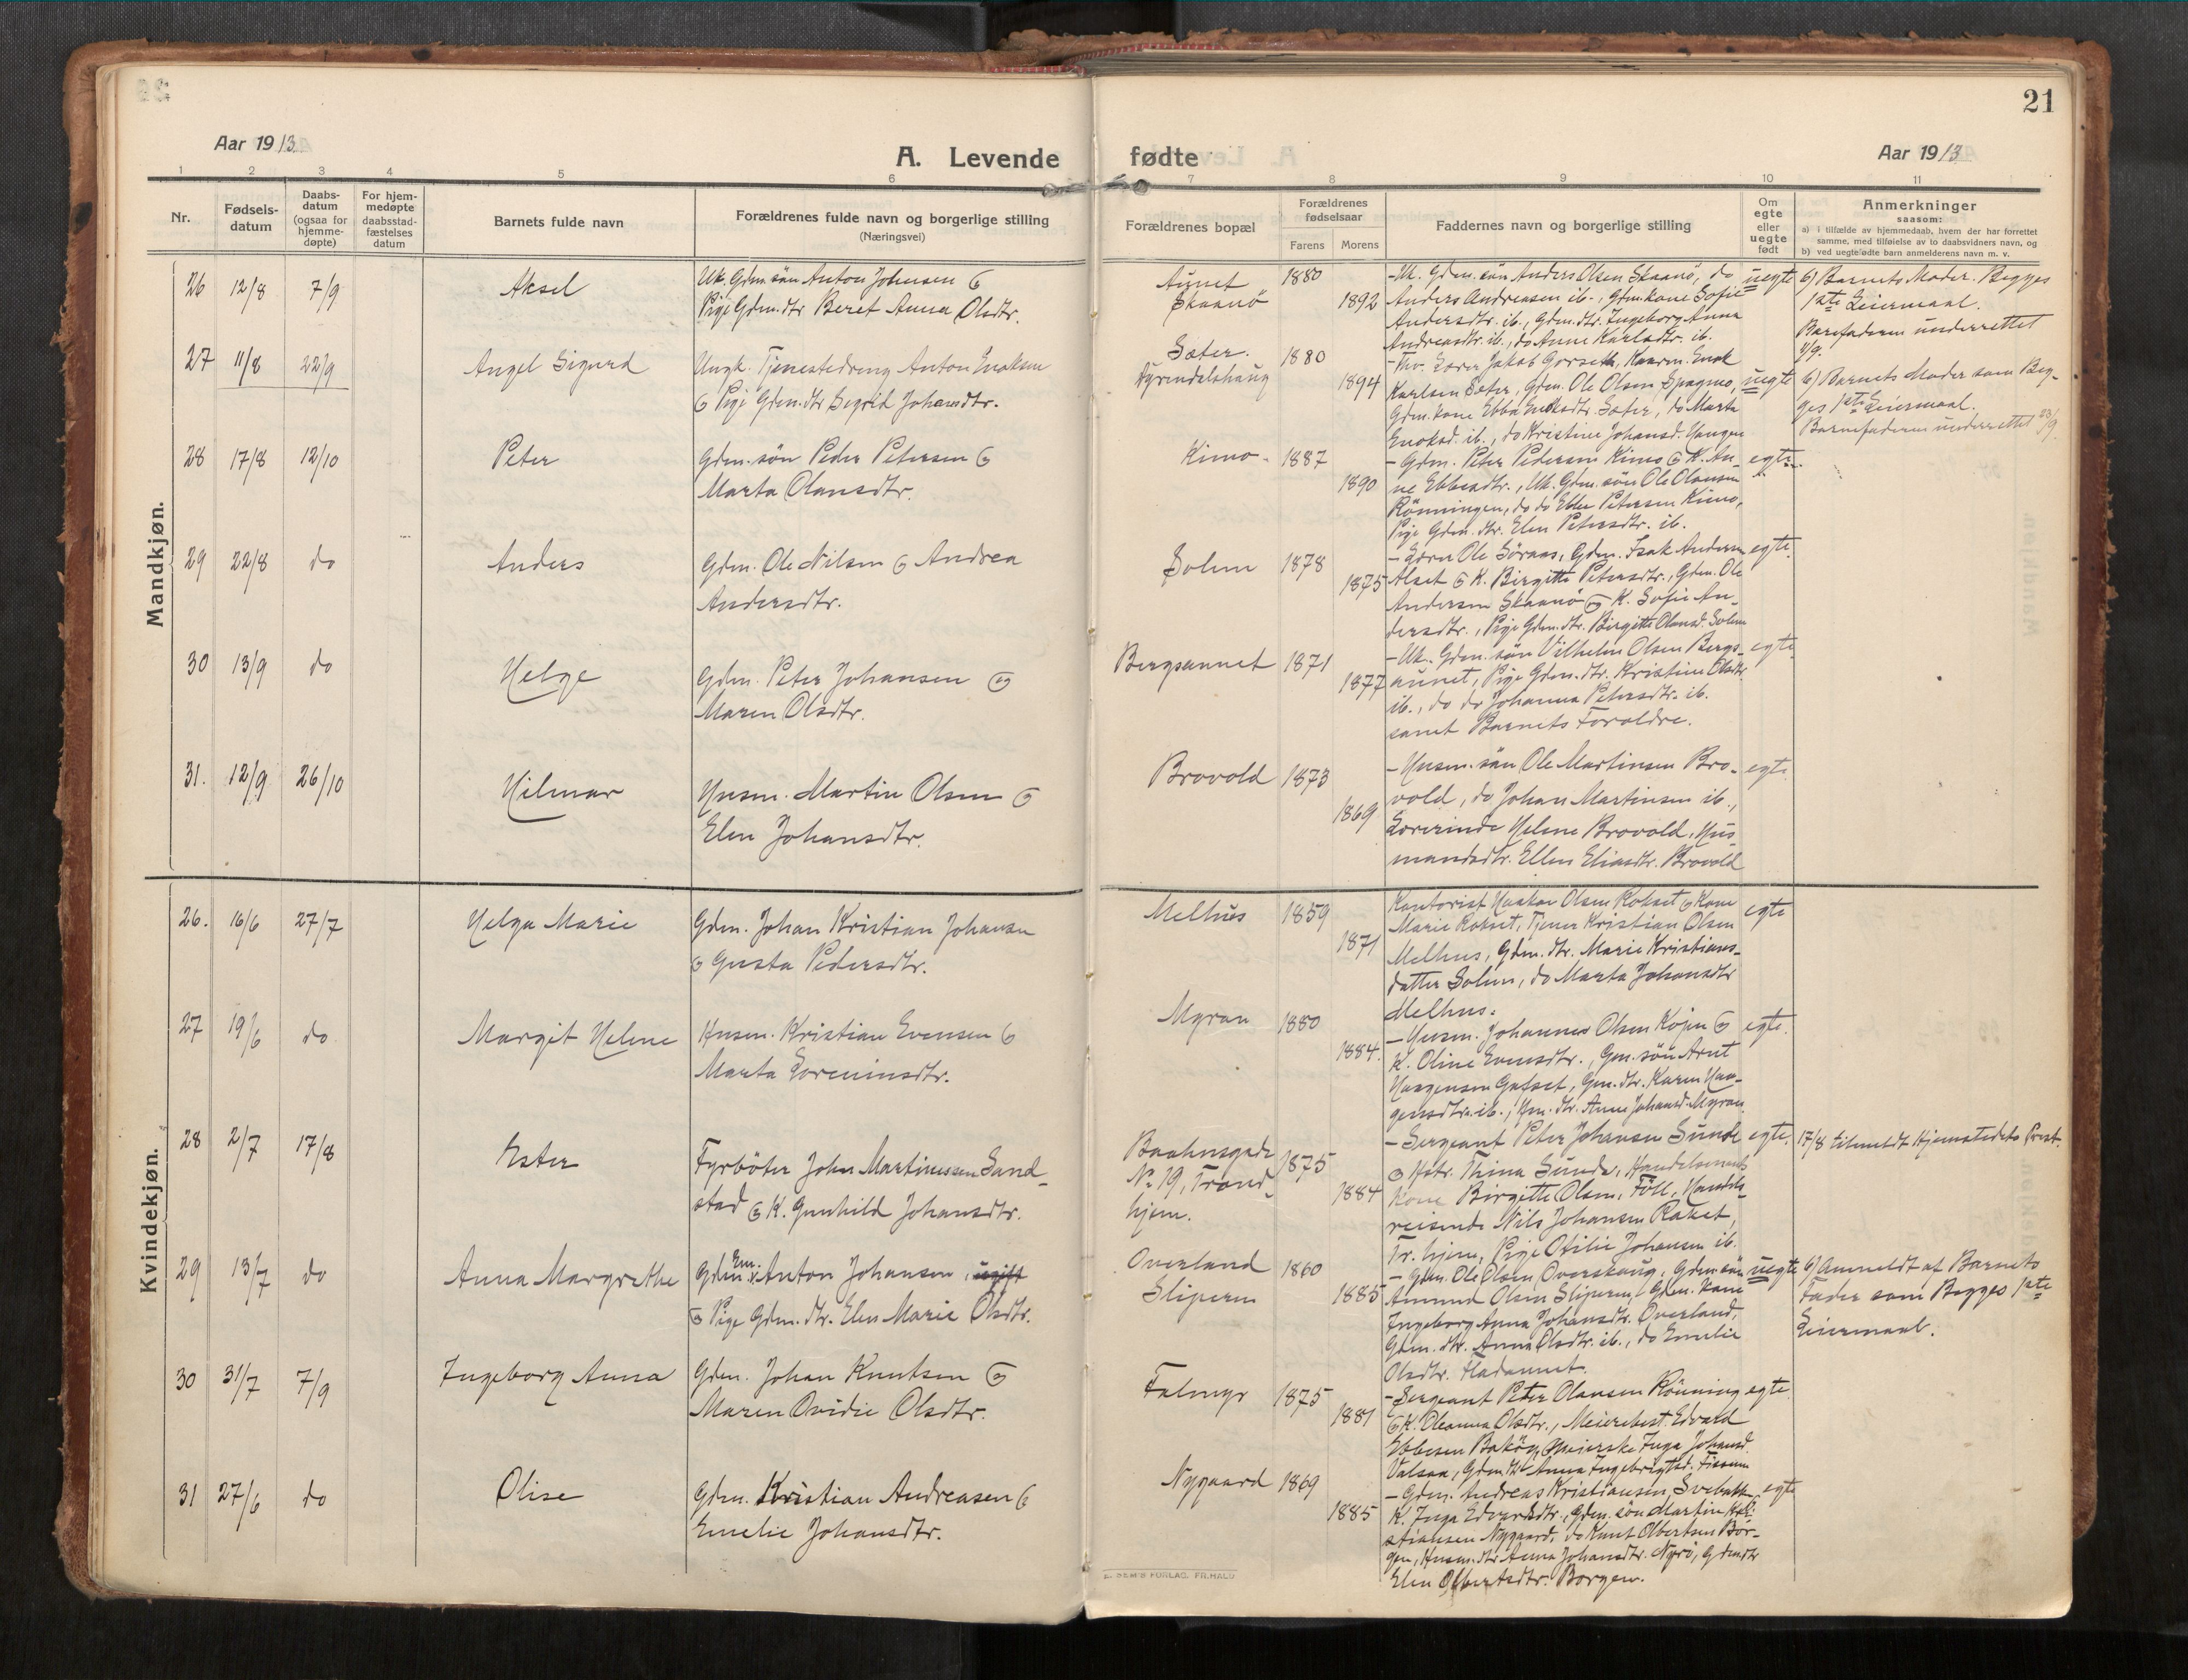 21
Aar 1913
A. Levende fødte
Aar 1913
1 2 3 4 5 6 7 8 9 10 11
Nr.
Fødsels-
datum
Daabs-
datum
(ogsaa for
hjemme-
døpte)
For hjem-
medøpte
daabsstad-
fæstelses
datum
Barnets fulde navn
Forældrenes fulde navn og borgerlige stilling
(Næringsvei)
Forældrenes bopæl
Forældrenes
fødselsaar
Farens
Morens
Faddernes navn og borgerlige stilling
Om
egte
eller
uegte
født
Anmerkninger
saasom:
a) i tilfælde av hjemmedaab, hvem der har forrettet
samme, med tilføielse av to daabsvidners navn, og
b) ved uegte fødte barn anmelderens navn m. v.
Mandkjøn.
26 12/8 7/9 Aksel
Uk. Gdm. sön Anton Johnsen og
Pige Gdm. dtr. Beret Anna Olsdtr.
Aunet
Skaanö
1880
1892
- Uk. Gdm. sön Anders Olsen Skaanö, do
Anders Andreasen ib., Gdm. kone Sofie
Andersdtr. ib., Gdm. dtr. Ingeborg Anna
Andreasdtr. ib., do Anne Karlsdtr. ib.
uegte
b) Barnets Moder. Begges
1ste Leiermaal.
Barnefaderen underrettet
9/9.
27 11/8 22/9 Angel Sigurd
Ungk. Tjenestedreng Anton Enoksen
og Pige Gdm. dtr. Sigrid Johansdtr.
Sæter.
Dyrendalshaug
1880
1894
Lærer Jakob Gorseth, Enok
Karlsen Sæter, Gdm. Ole Olsen
Gdm. kone Ebba Enoksdtr. Sæter, do Marta
Enoksd. ib., do Kristine Johansd. Haugen
uegte
b) Barnets Moder som Beg-
ges 1ste Leiermaal.
Barnefaderen underrettet 23/9.
28 17/8 12/10 Peter
Gdm. sön Peder Petersen og
Marta Olausdtr.
Kimo
1887
1890
- Gdm. Peter Pedersen Kimo og K. An-
ne Ebbesdtr., Uk. Gdm. sön Ole Olausen
Rönningen, do do Ebbe Petersen Kimo,
Pige Gdm. dtr. Elen Petersdtr. ib.
egte
29 22/8 do Anders
Gdm. Ole Nilsen og Andrea
Andersdtr.
Solem
1878
1875
- Lærer Ole Söraas, Gdm. Isak Andersen
Alset og K. Birgitte Petersdtr., Gdm. Ole
Andersen Skaanö og K. Sofie An-
dersdtr., Pige Gdm. dtr. Birgitte Olausd. Solem
egte.
30 13/9 do Helge
Gdm. Peter Johansen og
Maren Olsdtr.
Bergsaunet
1871
1877
- Uk. Gdm. sön Vilhelm Olsen Bergs-
aunet, Pige Gdm. dtr. Kristine Olsdtr.
ib., do do Johanna Petersdtr. ib.
samt Barnets Forældre.
egte.
31. 12/9 26/10 Hilmar
Husm. Martin Olsen og
Elen Johansdtr.
Brovold
1873
1869
- Husm. sön Ole Martinsen Bro-
vold, do Johan Martinsen ib.,
Lærerinde Helene Brovold, Hus-
mandsdtr. Ellen Eliasdtr. Brovold
egte
Kvindekjøn.
26. 16/6 27/7 Helga Marie
Gdm. Johan Kristian Johansen
og Gusta Pedersdtr.
Melhus
1859
1871
Kontorist Haakon Olsen Rokset og Kone
Marie Rokset, Tjener Kristian Olsen
Melhus, Gdm. dtr. Marie Kristians-
datter Solem, do Marta Johansdtr
Melhus.
egte
27 19/6 do Margit Helene
Husm. Kristian Evensen og
Marta Loreninsdtr.
Myran
1880
1884.
- Husm. Johannes Olsen Kojen og
K. Oline Evensdtr., Gm. sön Arnt
Haagensen Gafset, Gm. dtr. Karen Haa-
gensdtr. ib., Hm. dtr. Anne Johansd. Myran
egte.
28 2/7 17/8 Ester
Fyrböter John Martinussen Sand-
stad og K. Gunhild Johansdtr.
Baahusgade
No 19, Trond-
hjem.
1875
1884
- Sergeant Peter Johansen Sunde
og Hstr. Thina Sunde, Handelsmands
kone Birgitte Olsen, Föll, Handels-
reisende Nils Johansen Raket,
Tr. hjem, Pige Otilie Johansen ib.
egte.
17/8 tilmeldt Hjemstedets Prest.
29 13/7 do Anna Margrethe
Gdm. Em. Anton Johansen, ugift
og Pige Gdm. dtr. Elen Marie Olsdtr.
Overland
Sliperen
1860
1885
- Gdm. Ole Olsen Overskaug, Gdm. sön
Amund Olsen Sliperen, Gdm. kone
Ingeborg Anna Johansdtr. Overland,
Gdm. dtr. Anna Olsdtr. ib., do Emelie
Olsdtr. Fladaunet.
uegte
b) Anmeldt af Barnets
Fader som Begges 1ste
Leiermaal.
30 31/7 7/9 Ingeborg Anna
Gdm. Johan Knutsen og
Maren Ovidie Olsdtr.
Falmyr
1875
1881
- Sergeant Peter Olausen Rönning
og K. Oleanna Olsdtr., Meieribest. Edvard
Ebbesen Baköy, Meierske Inga Johansd.
Valsaa, Gdm. dtr Anna Ingebrigtsd. Fissum
egte.
31 27/6 do Olise
Gdm. Kristian Andreasen og
Emelie Johansdtr.
Nygaard
1869
1885
- Gdm. Andreas Kristiansen, Svebakk.
K. Inga Edvardsdtr., Gdm. sön Martin Kri-
stiansen Nygaard, do Knut Olbertsen Bor-
gen, Husm. dtr Anna Johansdtr. Nyrö, Gdm dtr
Elen Olbertsdtr. Borgen.
egte